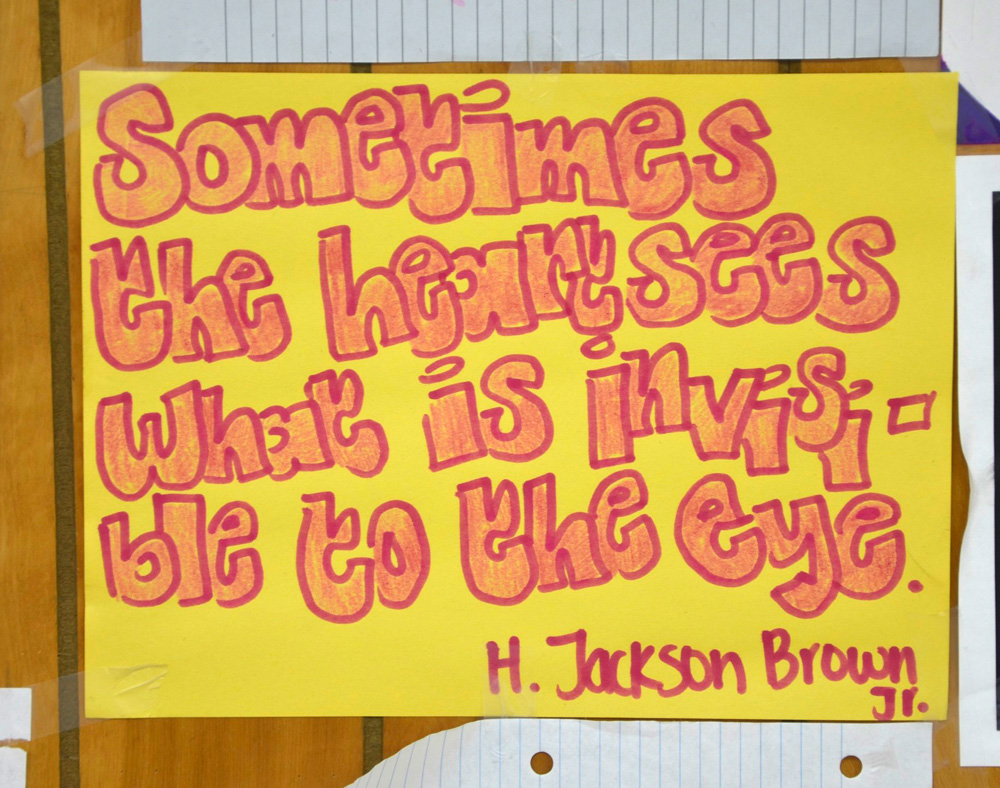 Sometimes
the heart sees
what is invisi-
ble to the eye.
H. Jackson Brown
Jr.